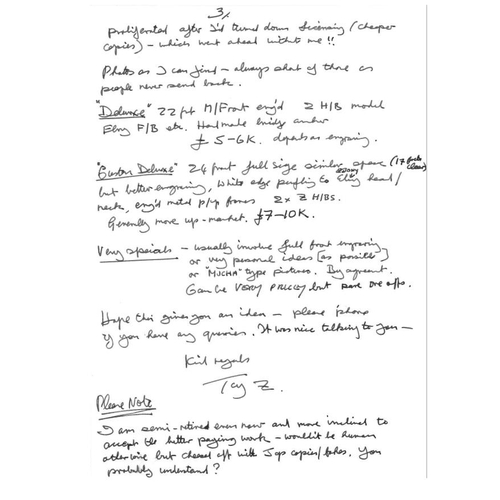 3/.
proliferated after I'd turned down licensing (cheaper
copies) – which went ahead without me!!
Photos as I can find – always short of those as
people never send back.
"Deluxe" 22 fret M/Front eng'd 2 H/B model
Ebny F/B etc. Handmade bridge and/or
£5–6K. depends on engraving.
"Custom Deluxe" 24 fret full size similar above (17
but better engraving, White edge purfling to Ebny head/
neck, eng'd metal p/up frames 2 x Z H/BS.
Generally more up-market. £7–10K.
Very specials – usually involve full front engraving
or very personal ideas [as possible]
or "MUCHA" type pictures. By agreement.
Can be VERY PRICEY but pure one offs.
Hope this gives you an idea – please 'phone
if you have any queries. It was nice talking to you –
Kind regards
Tony Z.
Please Note
I am semi-retired even now and more inclined to
accept the better paying work – wouldn't be human
otherwise but cheesed off with Jap copies/fakes. You
probably understand?